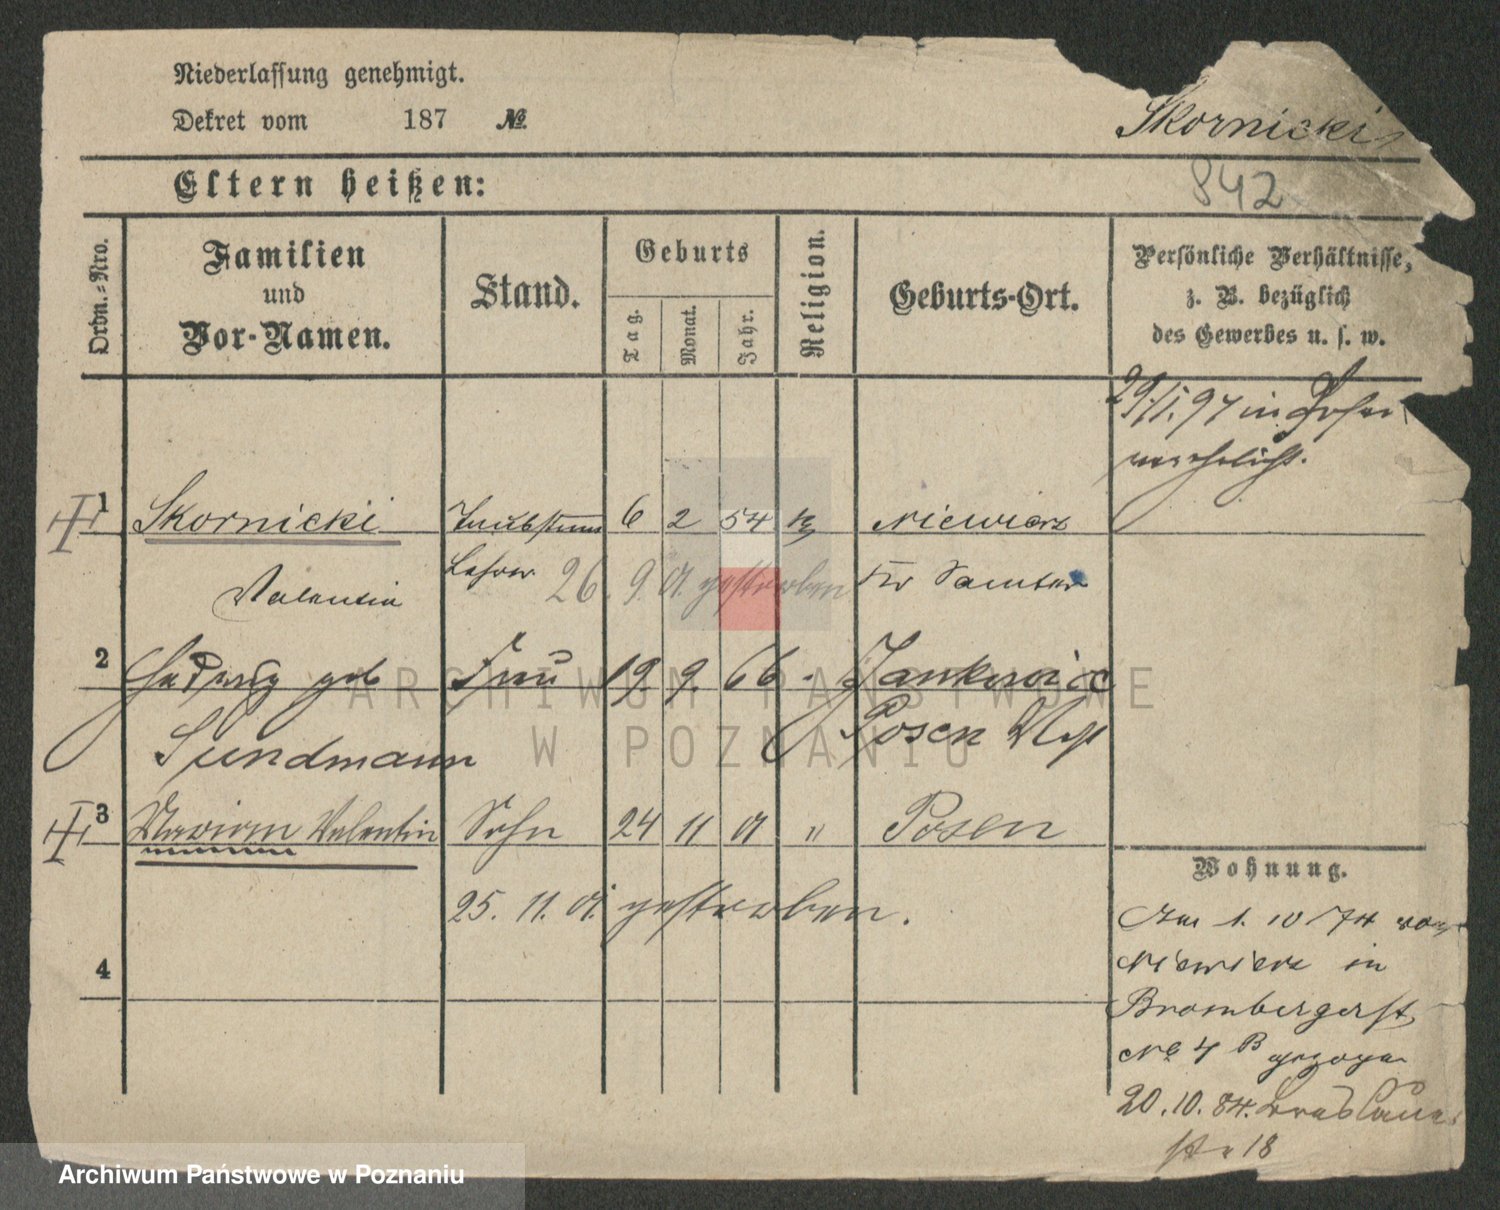 Niederlassung genehmigt.
Dekret vom 187 №.
Skornicki
Eltern heißen:
842
Ordn.-Nro.
Familien
und
Vor-Namen.
Stand.
Geburts
Tag.
Monat.
Jahr.
Religion.
Geburts-Ort.
Persönliche Verhältnisse,
z. B. bezüglich
des Gewerbes u. s. w.
29/1. 97 in Posen
verehelicht.
1 Skornicki Taubstumm 6 2 54 k Niewierz
Valentin Lehrer 26. 9. 01 gestorben Kr Samter
2 Hedwig geb Frau 19. 9. 66 Jankowice
Sundmann Posen West
3 Marian Valentin Sohn 24 11 01 " Posen
25. 11. 01. gestorben.
4
Wohnung.
Am 1. 10 74 von
Niewierz in
Brombergerst
№ 4 B gezogen
20. 10. 84. Breslauer
str 18
ARCHIWUM PAŃSTWOWE
W POZNANIU
Archiwum Państwowe w Poznaniu